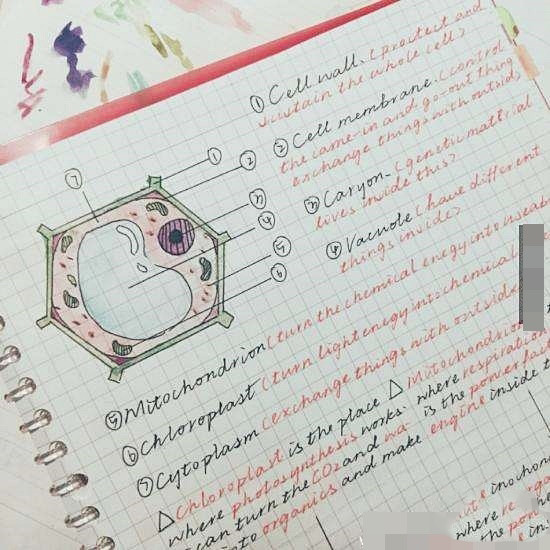 ① Cell wall. (proctect and
sustain the whole cell)
② Cell membrane. (control
the came-in and go-out thing
exchange things with outside
③ Caryon. (genetic mattrial
lives inside this)
④ Vacuote (have different
things inside)
⑤ Mitochondrion (turn the chemical enegy into useab
⑥ Chloroplast (turn light enegy into chemical
⑦ Cytoplasm (exchange things with outside
△ Chloroplast is the place
where photosynthesis works
can turn the CO2 and wa-
into organics and make
△ Mitochondrion
where respiration
is the powerful
engine inside t
①
②
③
④
⑤
⑥
⑦
inochon
where re
the po
e in